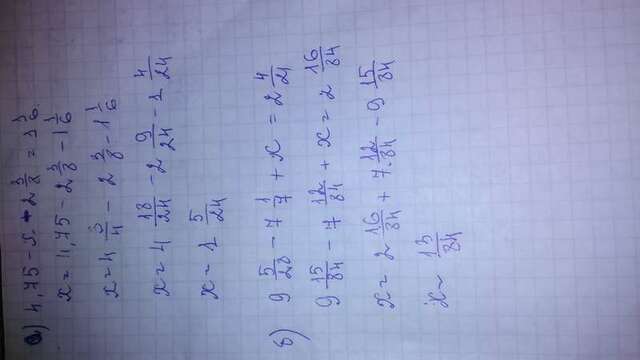 а) 4,75 - x - 2 3/8 = 1 1/6
x = 4,75 - 2 3/8 - 1 1/6
x = 4 3/4 - 2 3/8 - 1 1/6
x = 4 18/24 - 2 9/24 - 1 4/24
x = 1 5/24
б)
9 5/28 - 7 1/7 + x = 2 4/21
9 15/84 - 7 12/84 + x = 2 16/84
x = 2 16/84 + 7 12/84 - 9 15/84
x = 13/84